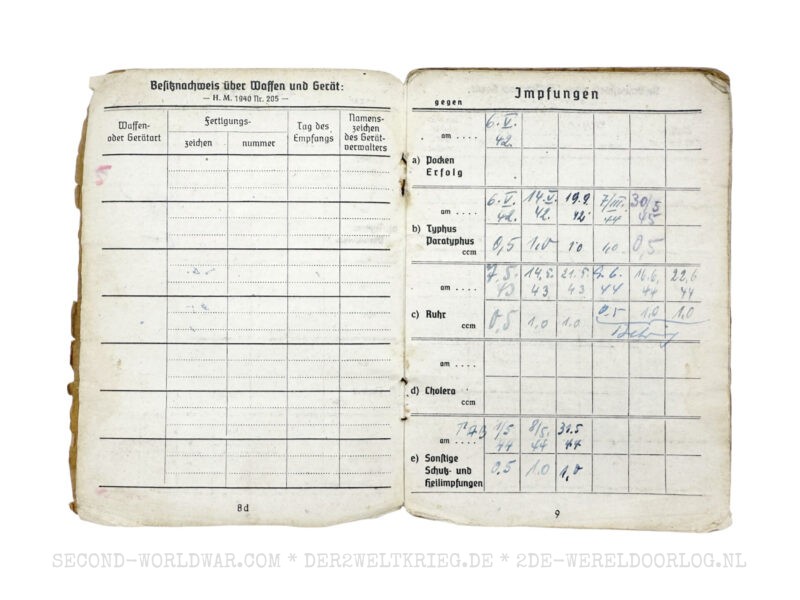 Besitznachweis über Waffen und Gerät:
— H. M. 1940 Nr. 205 —
Waffen-
oder Gerätart
Fertigungs-
zeichen
nummer
Tag des
Empfangs
Namens-
zeichen
des Gerät-
verwalters
8d
Impfungen
gegen
am . . . .
6. V.
42.
a) Pocken
Erfolg
am . . . .
6. V. 14. V. 19.9. 7/III. 30/5
42. 42. 42. 44 45
b) Typhus
Paratyphus
ccm
0,5 1,0 1.0 1,0 0,5
am . . . .
7.5. 14.5. 21.5. 9.6. 16.6. 22.6
43 43 43. 44 44 44
c) Ruhr
ccm
0,5 1,0 1,0 0,5 1,0 1,0
am . . . .
d) Cholera
ccm
TAB 1/5 8/5. 31.5
am . . . . 44 44 44
e) Sonstige
Schutz- und
Heilimpfungen
0,5 1,0 1,0
9
SECOND-WORLDWAR.COM * DER2WELTKRIEG.DE * 2DE-WERELDOORLOG.NL